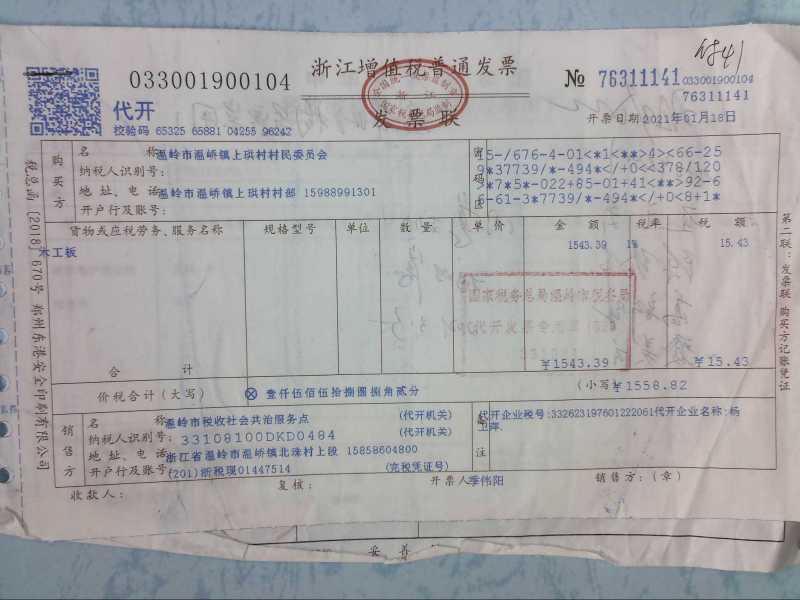 付41
033001900104
浙江增值税普通发票
№ 76311141
033001900104
76311141
代开
发票联
校验码 65325 65881 04255 96242
开票日期 2021年01月18日
购买方
名 称 温岭市温峤镇上珙村村民委员会
纳税人识别号:
地址、电话 温岭市温峤镇上珙村村部 15988991301
开户行及账号:
密码区
5-/676-4-01<*1<**>4><66-25
9*37739/*-494*</+0<<378/120
>7*5*-022+85-01+41<**>92-6
6-61-3*7739/*-494*</+0<8+1*
货物或应税劳务、服务名称 规格型号 单位 数量 单价 金额 税率 税额
木工板 1543.39 1% 15.43
国家税务总局温岭市税务局
代开发票专用章
合 计 ¥1543.39 ¥15.43
价税合计(大写) ⊗ 壹仟伍佰伍拾捌圆捌角贰分 (小写)¥1558.82
销售方
名 称 温岭市税收社会共治服务点 (代开机关)
纳税人识别号: 33108100DKD0484 (代开机关)
地址、电话 浙江省温岭市温峤镇北珠村上段 15858604800
开户行及账号 (201)浙税现01447514 (完税凭证号)
备注
代开企业税号:332623197601222061代开企业名称:杨
卫萍
收款人: 复核: 开票人 季伟阳 销售方:(章)
税总函〔2018〕670号 郑州东港安全印刷有限公司
第二联:发票联 购买方记账凭证